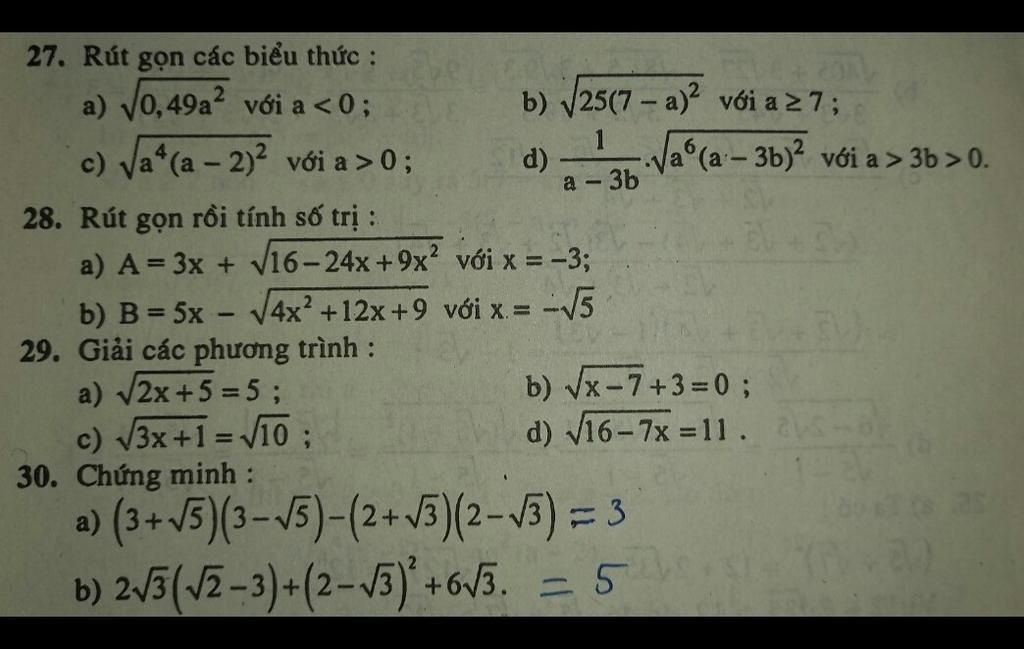 27. Rút gọn các biểu thức :
a) √0,49a² với a < 0 ; b) √25(7 – a)² với a ≥ 7 ;
c) √a⁴(a – 2)² với a > 0 ; d) 1/(a – 3b) . √a⁶(a – 3b)² với a > 3b > 0.
28. Rút gọn rồi tính số trị :
a) A = 3x + √16 – 24x + 9x² với x = –3;
b) B = 5x – √4x² + 12x + 9 với x = –√5
29. Giải các phương trình :
a) √2x + 5 = 5 ; b) √x – 7 + 3 = 0 ;
c) √3x + 1 = √10 ; d) √16 – 7x = 11 .
30. Chứng minh :
a) (3 + √5)(3 – √5) – (2 + √3)(2 – √3) = 3
b) 2√3(√2 – 3) + (2 – √3)² + 6√3. = 5